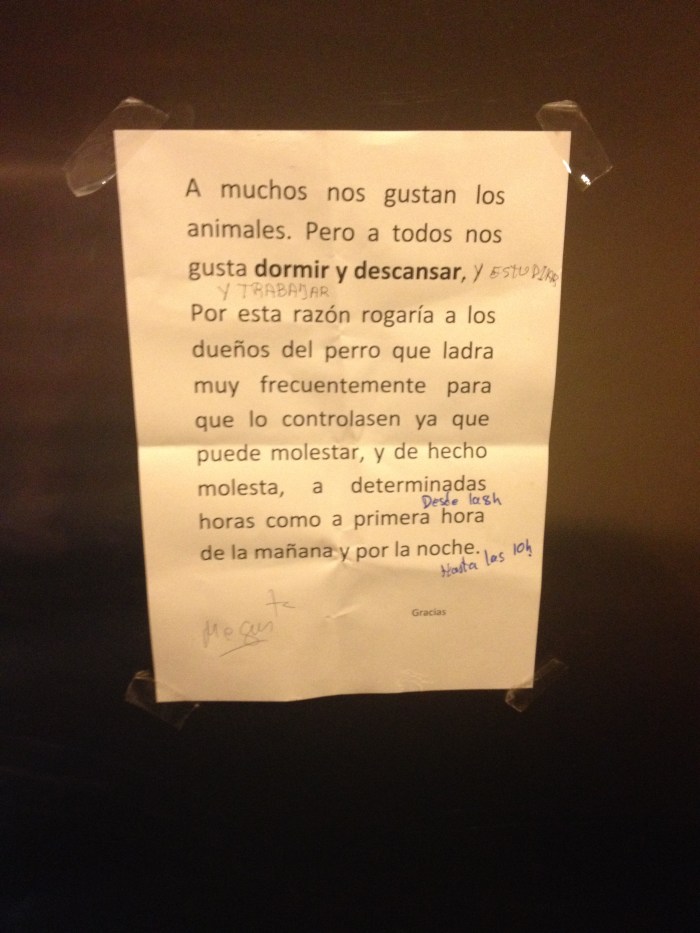 A muchos nos gustan los
animales. Pero a todos nos
gusta dormir y descansar, Y ESTUDIAR
Y TRABAJAR
Por esta razón rogaría a los
dueños del perro que ladra
muy frecuentemente para
que lo controlasen ya que
puede molestar, y de hecho
molesta, a determinadas
Desde la 8h
horas como a primera hora
de la mañana y por la noche.
Hasta las 10h
Gracias
Me gusta